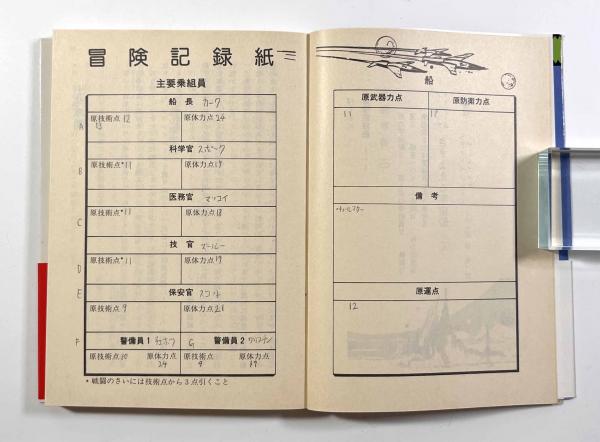 冒険記録紙
主要乗組員
船長 カーク
A 原技術点 12 原体力点 24
13
科学官 スポーク
B 原技術点*11 原体力点 19
医務官 マッコイ
C 原技術点*11 原体力点 18
技官
D 原技術点*11 原体力点 19
E 保安官
原技術点 9 原体力点 21
F 警備員1 チェホフ G 警備員2
原技術点 10 原体力点 原技術点 原体力点
24 9 19
*戦闘のさいには技術点から3点引くこと
船
原武器力点 原防衛力点
11 18
備考
原運点
12